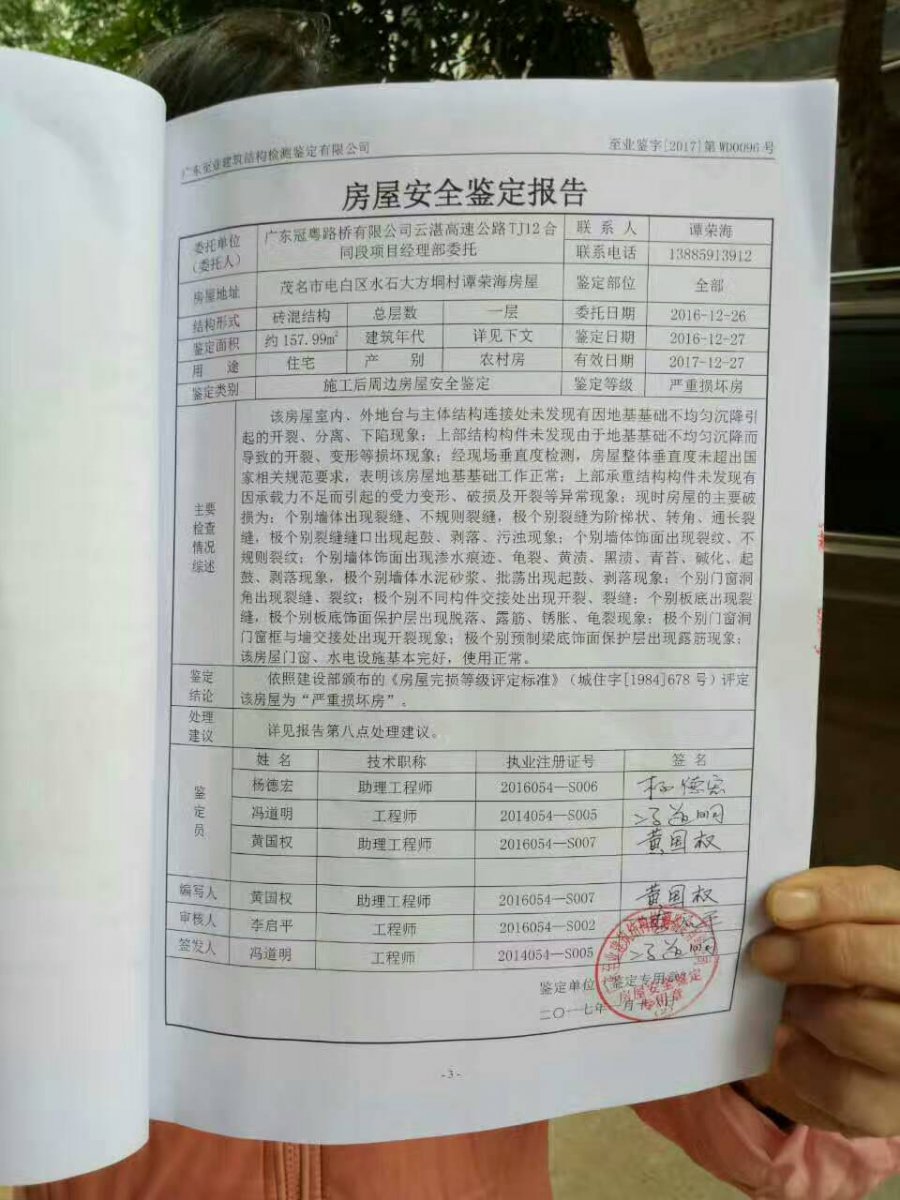 广东至业建筑结构检测鉴定有限公司 至业鉴字[2017]第WD0096号
房屋安全鉴定报告
委托单位（委托人） 广东冠粤路桥有限公司云湛高速公路TJ12合同段项目经理部委托 联系人 谭荣海
联系电话 13885913912
房屋地址 茂名市电白区水石大方垌村谭荣海房屋 鉴定部位 全部
结构形式 砖混结构 总层数 一层 委托日期 2016-12-26
鉴定面积 约157.99m² 建筑年代 详见下文 鉴定日期 2016-12-27
用途 住宅 产别 农村房 有效日期 2017-12-27
鉴定类别 施工后周边房屋安全鉴定 鉴定等级 严重损坏房
主要检查情况综述
该房屋室内、外地台与主体结构连接处未发现有因地基基础不均匀沉降引
起的开裂、分离、下陷现象；上部结构构件未发现由于地基基础不均匀沉降而
导致的开裂、变形等损坏现象；经现场垂直度检测，房屋整体垂直度未超出国
家相关规范要求，表明该房屋地基基础工作正常；上部承重结构构件未发现有
因承载力不足而引起的受力变形、破损及开裂等异常现象；现时房屋的主要破
损为：个别墙体出现裂缝、不规则裂缝，极个别裂缝为阶梯状、转角、通长裂
缝，极个别裂缝缝口出现起鼓、剥落、污浊现象；个别墙体饰面出现裂纹、不
规则裂纹；个别墙体饰面出现渗水痕迹、龟裂、黄渍、黑渍、青苔、碱化、起
鼓、剥落现象，极个别墙体水泥砂浆、批荡出现起鼓、剥落现象；个别门窗洞
角出现裂缝、裂纹；极个别不同构件交接处出现开裂、裂缝；个别板底出现裂
缝，极个别板底饰面保护层出现脱落、露筋、锈胀、龟裂现象；极个别门窗洞
门窗框与墙交接处出现开裂现象；极个别预制梁底饰面保护层出现露筋现象；
该房屋门窗、水电设施基本完好，使用正常。
鉴定结论 依照建设部颁布的《房屋完损等级评定标准》（城住字[1984]678号）评定
该房屋为“严重损坏房”。
处理建议 详见报告第八点处理建议。
鉴定员 姓名 技术职称 执业注册证号 签名
杨德宏 助理工程师 2016054—S006 杨德宏
冯道明 工程师 2014054—S005 冯道明
黄国权 助理工程师 2016054—S007 黄国权
编写人 黄国权 助理工程师 2016054—S007 黄国权
审核人 李启平 工程师 2016054—S002
签发人 冯道明 工程师 2014054—S005 冯道明
鉴定单位（鉴定专用章）
房屋安全鉴定
专用章
(2)
二〇一七年一月
- 3 -